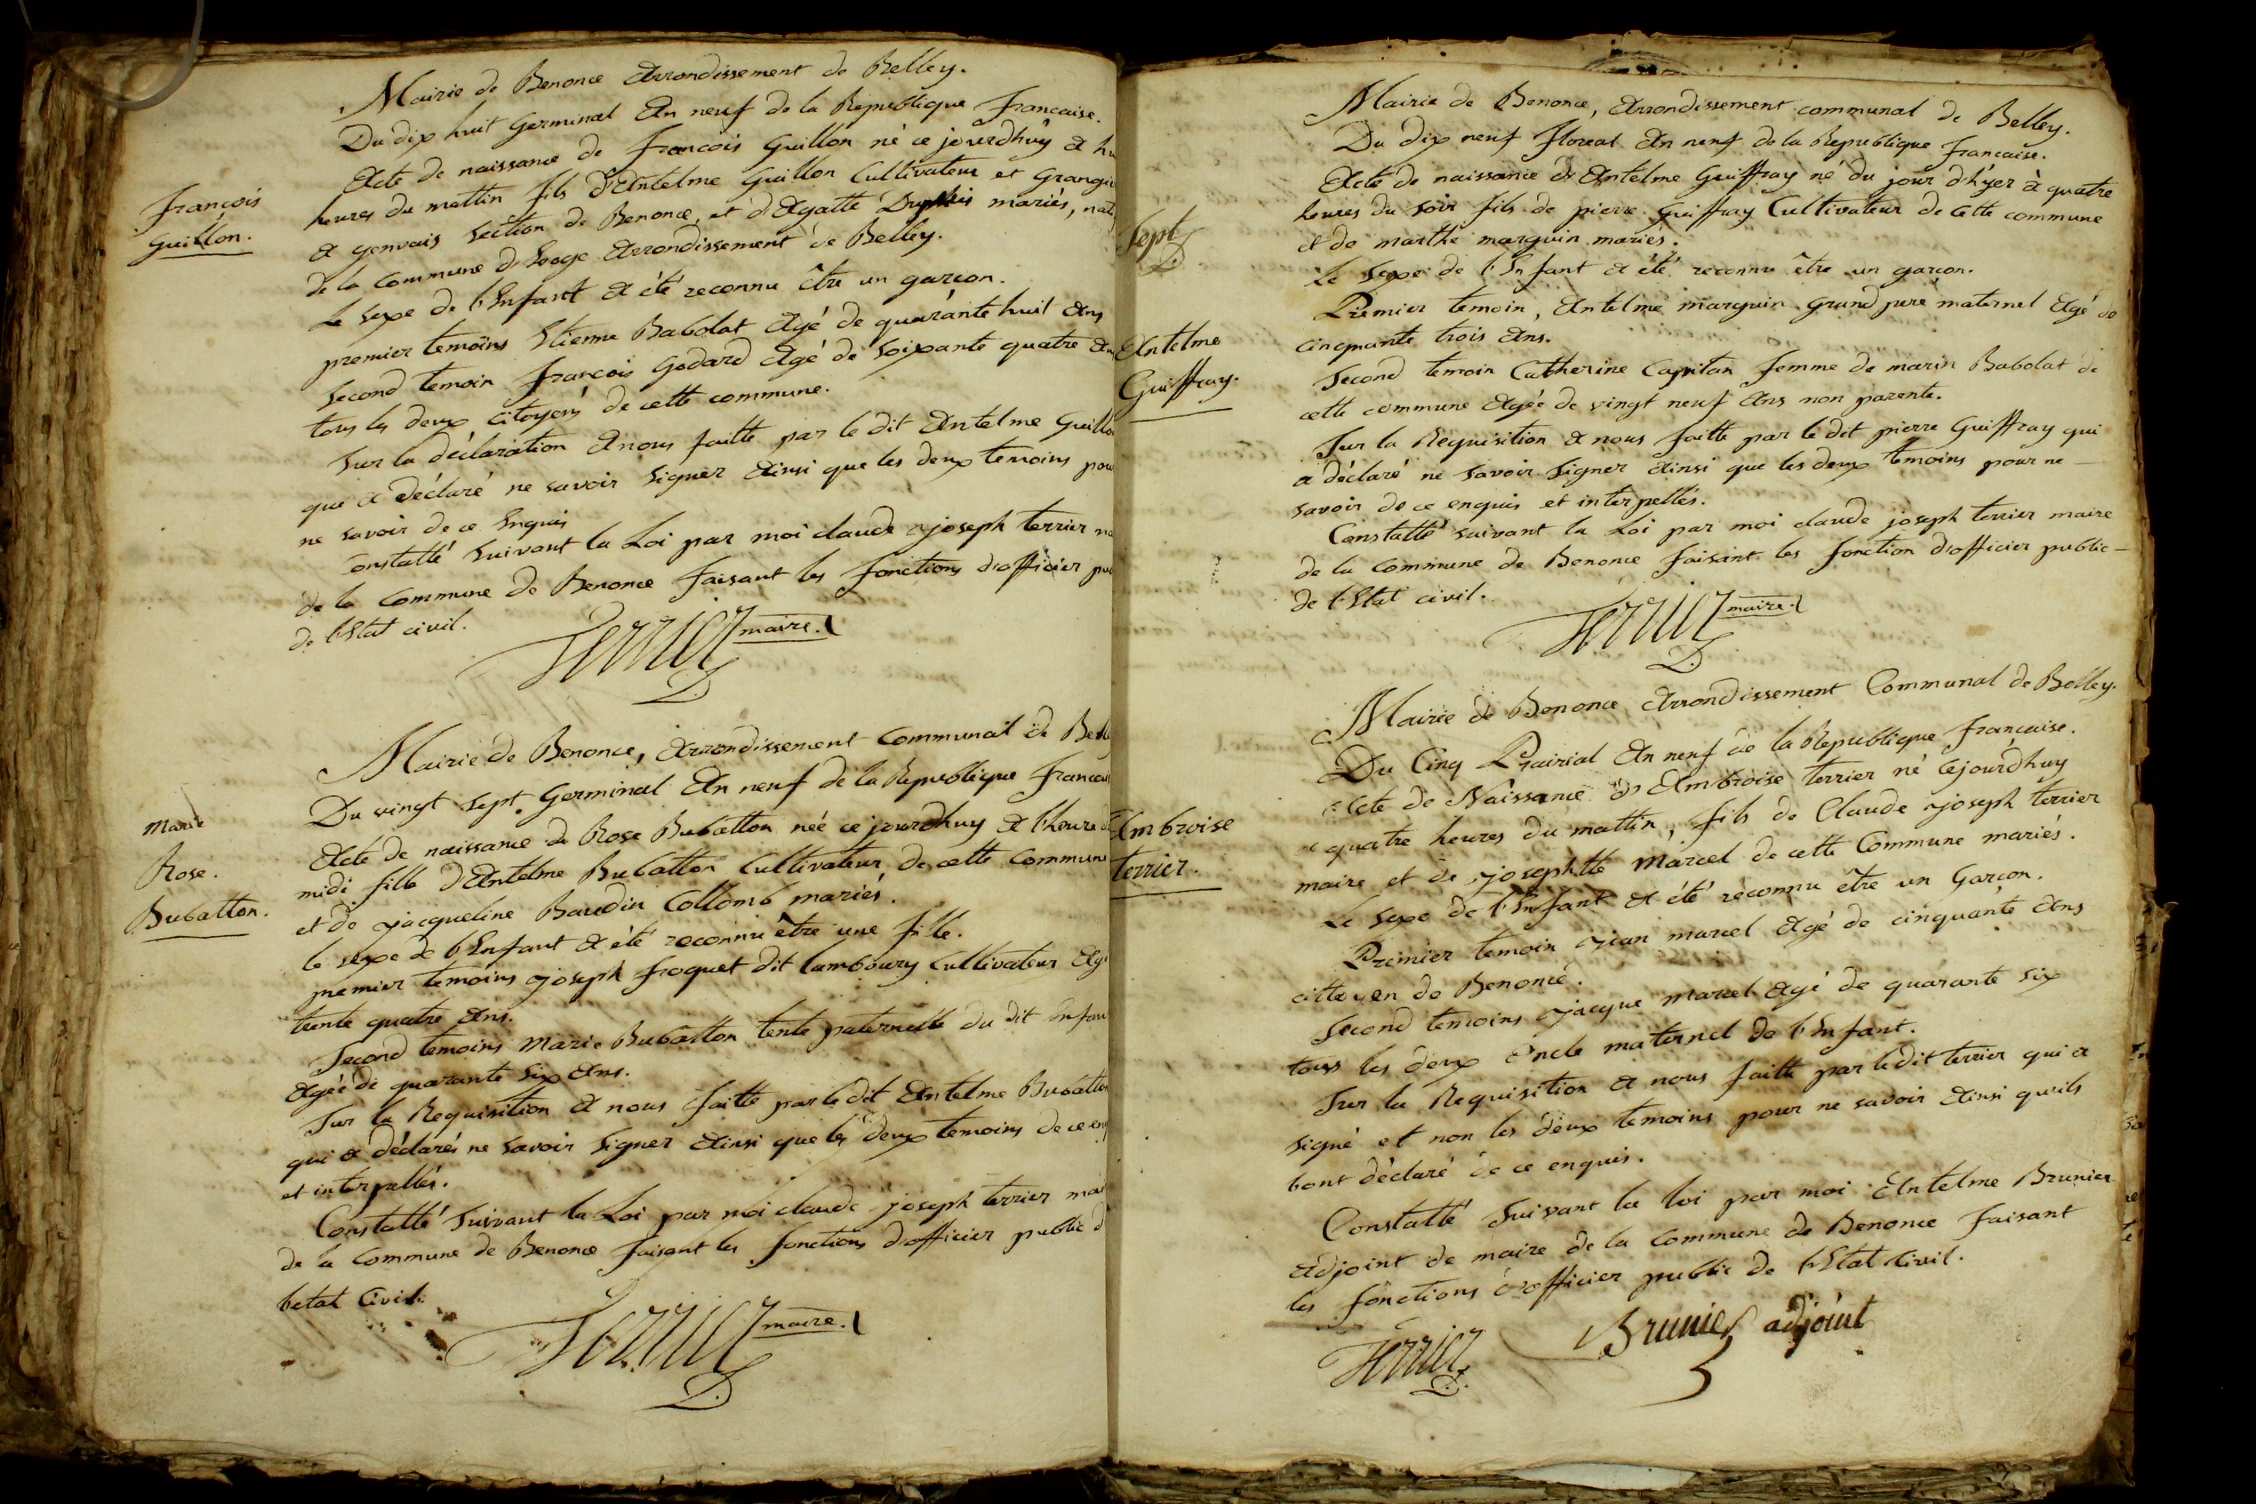 Mairie de Benonce Arrondissement de Belley.
Du dix huit Germinal An neuf de la Republique francaise.
Acte de naissance de francois Guillon né ce jourdhuy a hu
heures du mattin fils d'Antelme Guillon Cultivateur et Granger
a genvais section de Benonce, et d'Agatte mariés, nat
de la commune d'hoage Arrondissement de Belley.
Le sexe de l'Enfant a été reconnu être un garcon.
premier temoins Etienne Babolat Agé de quarante huit Ans
Second temoin francois Godard Agé de soixante quatre An
tous les deux citoyens de cette commune.
Sur la déclaration a nous faitte par le dit Antelme Guillo
que a déclaré ne savoir signer Ainsi que les deux temoins pou
ne savoir de ce Enquis
Constatté suivant la Loi par moi claude joseph terrier m
de la commune de Benonce faisant les fonctions d'officier pu
de l'Etat civil.
Terrier maire.
francois
Guillon.
Mairie de Benonce, Arrondissement communal de Bell
Du vingt sept Germinal An neuf de la Republique francai
Acte de naissance de Rose Bubatton née ce jourdhuy a l'heure d
midi fille d'Antelme Bubatton Cultivateur de cette commune
et de jacqueline Baudin Collomb mariés.
le sexe de l'Enfant a été reconnu être une fille.
premier temoins joseph froquet dit lamboury Cultivateur Ag
trente quatre Ans.
Second temoins Marie Bubatton tente paternelle du dit Enfan
Agée de quarante six Ans.
Sur la Requisition a nous faitte par ledit Antelme Bubatton
qui a déclarés ne savoir signer Ainsi que les deux temoins de ce en
et interpellés.
Constatté suivant la Loi par moi claude joseph terrier mai
de la commune de Benonce faisant les fonctions d'officier public d
letat Civil.
Terrier maire.
Marie
Rose.
Bubatton.
Sept
Mairie de Benonce, Arrondissement communal de Belley.
Du dix neuf floreal An neuf de la Republique francaise.
Acte de naissance d'Antelme Guiffray né du jour d'hyer a quatre
heures du soir fils de pierre Guiffray Cultivateur de cette commune
et de marthe marguin mariés.
Le Sexe de l'Enfant a été reconnu être un garçon.
Premier temoin, Antelme marguin Grand pere maternel Agé de
cinquante trois Ans.
Second temoin Catherine Capitan femme de marin Babolat de
cette commune Agée de vingt neuf Ans non parente.
Sur la Requisition a nous faitte par le dit pierre Guiffray qui
a déclaré ne savoir signer Ainsi que les deux temoins pour ne
savoir de ce enquis et interpellés.
Constatté suivant la Loi par moi claude joseph terrier maire
de la commune de Benonce faisant les fonction d'officier public
de l'Etat civil.
Terrier maire.
Antelme
Guiffray.
Mairie de Benonce Arrondissement Communal de Belley.
Du Cinq Prairial An neuf de la Republique francaise.
Acte de Naissance d'Ambroise terrier né cejourdhuy
a quatre heures du mattin, fils de Claude joseph terrier
maire et de josephtte Marcel de cette Commune mariés.
Le sexe de l'Enfant a été reconnu être un Garçon.
Premier temoin jean marcel Agé de cinquante Ans
citteyen de Benonce.
Second temoins jacque marcel Agé de quarante six
touss les deux Oncle maternel de l'Enfant.
Sur la Requisition a nous faitte par ledit terrier qui a
signé et non les deux temoins pour ne savoir Ainsi quils
lont déclaré de ce enquis.
Constatté suivant la loi par moi Antelme Brunier
Adjoint de maire de la commune de Benonce faisant
les fonctions d'officier public de l'Etat Civil.
Terrier Brunier adjoint
Ambroise
terrier.